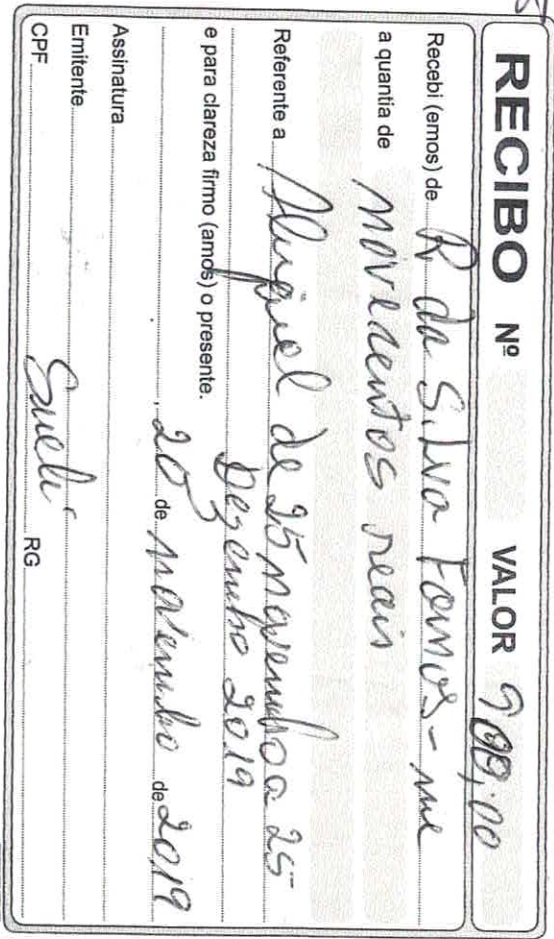 RECIBO Nº VALOR 900,00
Recebi (emos) de R da Silva Fornos - me
a quantia de novecentos reais
Referente a Aluguel de 25 novembro a 25
Dezembro 2019
e para clareza firmo (amos) o presente.
, 20 de novembro de 2019
Assinatura
Emitente Sueli
CPF RG